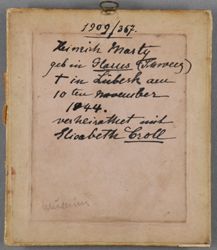 1909/367.
Heinrich Marty
geb in Glarus (Schweiz)
† in Lübeck am
10 ten November
1844.
verheirathet mit
Elisabeth Croll